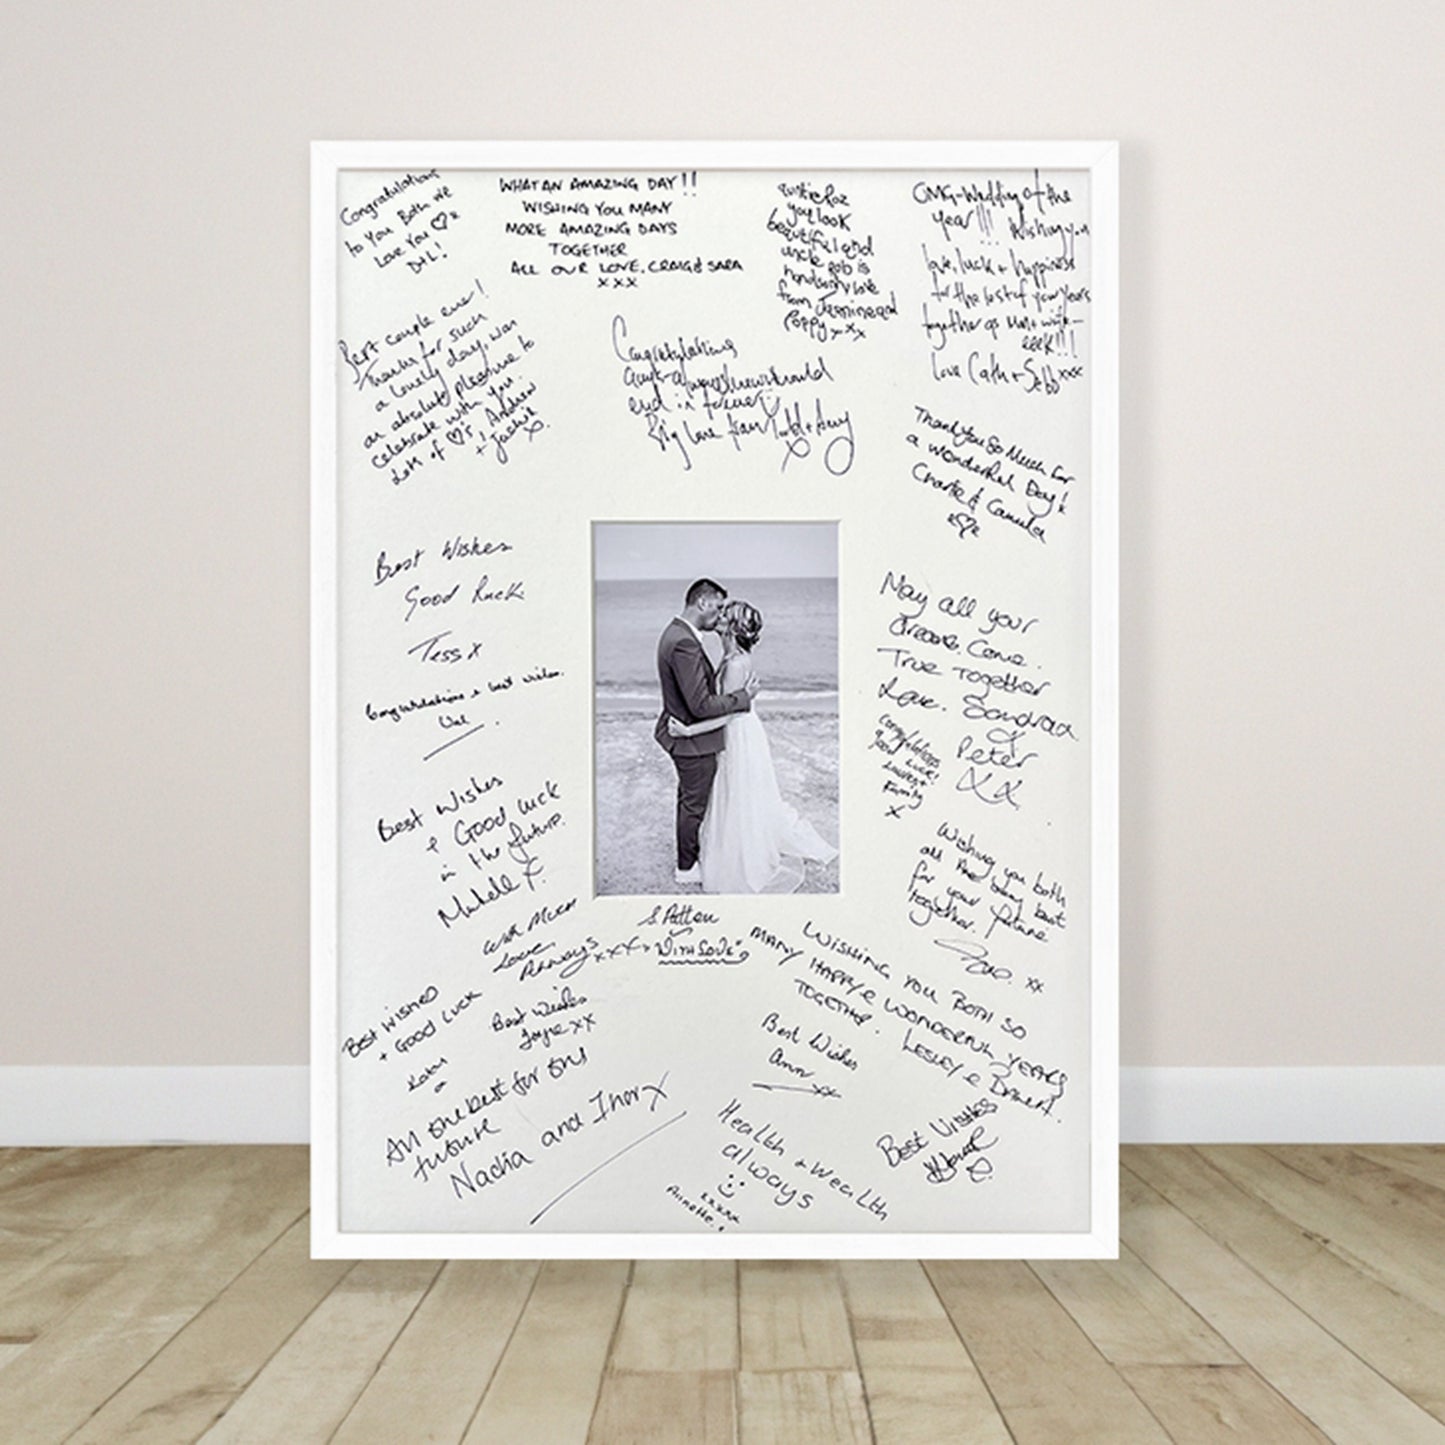 Congratulations
to You Both we
Love You
D+L!
WHAT AN AMAZING DAY!!
WISHING YOU MANY
MORE AMAZING DAYS
TOGETHER
ALL OUR LOVE, CRAIG & SARA
xxx
you look
beautiful and
uncle Rob is
handsome love
from
Poppy xxx
OMG-Wedding of the
Year!!! Wishing you
love, luck + happiness
for the rest of your years
together as
eeek!!!
love Cath + Sebb xxx
Best couple ever!
Thanks for such
a lovely day, was
an absolute pleasure to
celebrate with you.
Lots of ♡'s, Andrew
+
Congratulations
end in forever
Big love from Todd + Amy
x
Thank You So Much for
a wonderful Day! x
Charlie & Camilla
x♡x
Best Wishes
Good Luck
Tess x
Congratulations + best wishes.
Val
May all your
Dreams. Come.
True Together
Love. Sandra
Peter
XX
Congratulations
Good Luck!
Family
x
Best Wishes
+ Good luck
in the future.
Michelle X.
Wishing you both
all the very best
for your future
together.
xx
With Much
Love
Always xxxx
S. Patten
"WITH LOVE"
WISHING YOU BOTH SO
MANY HAPPY & WONDERFUL YEARS
TOGETHER. LESLEY &
Best Wishes
+ Good Luck
Best Wishes
Joyce xx
Best Wishes
Ann
xx
All the best for the
future
Nadia and Thor x
Health + Wealth
always
xxxxx
Annette.
Best Wishes